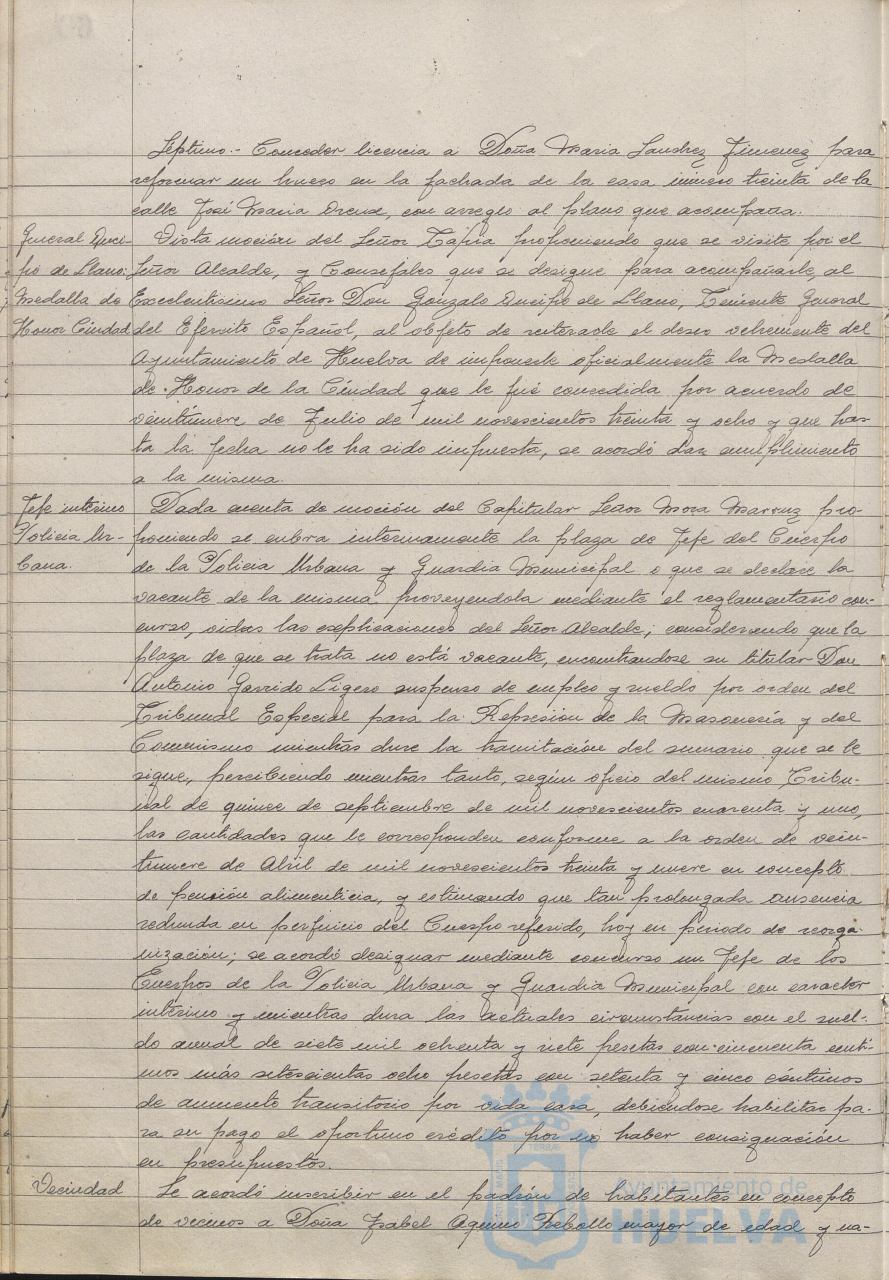 Séptimo.- Conceder licencia a Doña Maria Sanchez Jimenez para
reformar un hueco en la fachada de la casa número treinta de la
calle José Maria, con arreglo al plano que acompaña.
General Quei-
po de Llano:
Medalla de
Honor Ciudad
Vista moción del Señor Tapia proponiendo que se visite por el
Señor Alcalde, y Consejales que se designe para acompañarle, al
Excelentisimo Señor Don Gonzalo Queipo de Llano, Teniente General
del Ejercito Español, al objeto de reiterarle el deseo vehemente del
Ayuntamiento de Huelva de imponerle oficialmente la Medalla
de Honor de la Ciudad que le fué concedida por acuerdo de
veintinueve de Julio de mil novescientos treinta y ocho y que has-
ta la fecha no le ha sido impuesta, se acordó dar cumplimiento
a la misma.
Jefe interino
Policia Ur-
bana.
Dada cuenta de moción del Capitular Señor Mora Marruz pro-
poniendo se cubra interinamente la plaza de Jefe del Cuerpo
de la Policia Urbana y Guardia Municipal o que se declare la
vacante de la misma proveyendola mediante el reglamentario con-
curso, oidas las explicaciones del Señor Alcalde; considerando que la
plaza de que se trata no está vacante, encontrandose su titular Don
Antonio Garrido Ligero suspenso de empleo y sueldo por orden del
Tribunal Especial para la Represión de la Masonería y del
Comunismo mientras dure la tramitación del sumario que se le
sigue, percibiendo mientras tanto, según oficio del mismo Tribu-
nal de quince de septiembre de mil novescientos cuarenta y uno,
las cantidades que le corresponden conforme a la orden de vein-
tinueve de Abril de mil novescientos treinta y nueve en concepto
de pensión alimenticia, y estimando que tan prolongada ausencia
redunda en perjuicio del Cuerpo referido, hoy en periodo de reorga-
nización; se acordó designar mediante concurso un Jefe de los
Cuerpos de la Policia Urbana y Guardia Municipal con caracter
interino y mientras dura las actuales circunstancias con el suel-
do anual de siete mil ochenta y siete pesetas con cincuenta centi-
mos más setescientas ocho pesetas con setenta y cinco céntimos
de aumento transitorio por vida cara, debiendose habilitar pa-
ra su pago el oportuno crédito por no haber consignación
en presupuestos.
Vecindad
Se acordó inscribir en el padrón de habitantes en concepto
de vecinos a Doña Isabel Aquino Rebollo mayor de edad y na-
Ayuntamiento de
HUELVA